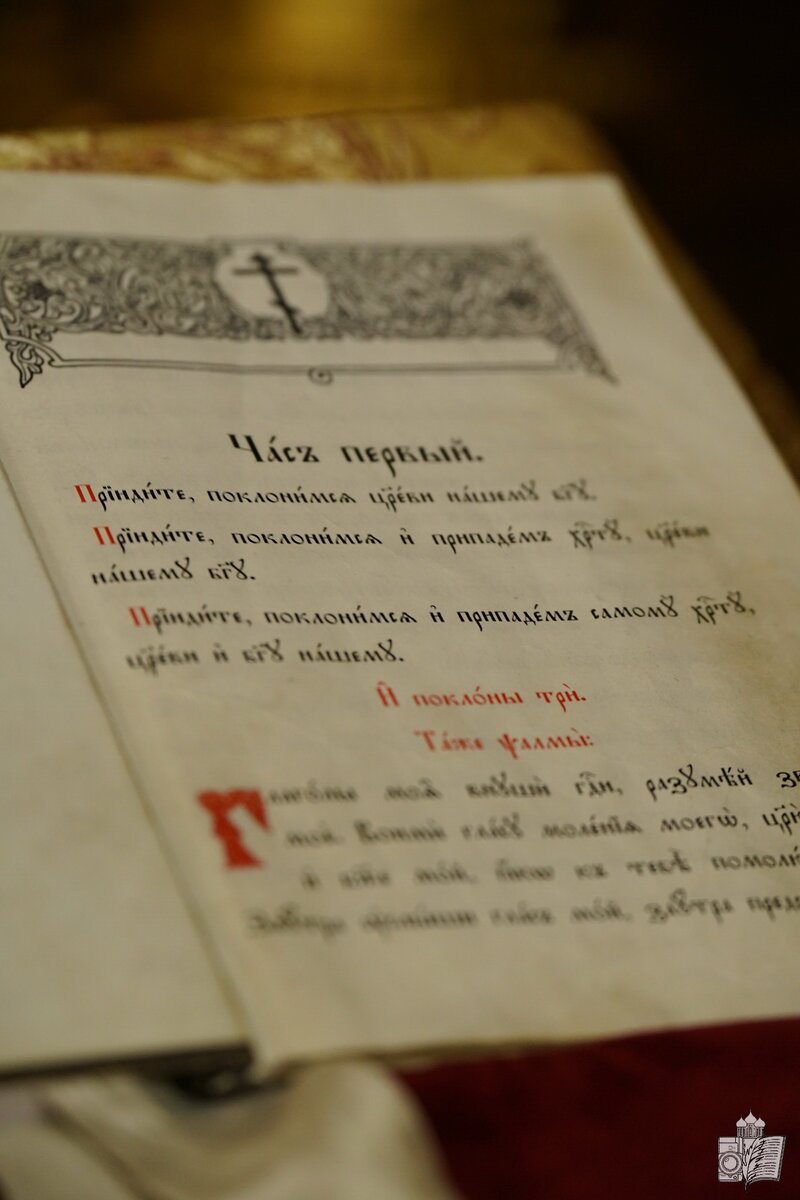 Ча́съ пе́рвый.
Прїиди́те, поклони́мсѧ цр҃е́ви на́шемꙋ бг҃ꙋ.
Прїиди́те, поклони́мсѧ и҆ припаде́мъ хрⷭ҇тꙋ̀, цр҃е́ви
на́шемꙋ бг҃ꙋ.
Прїиди́те, поклони́мсѧ и҆ припаде́мъ самомꙋ̀ хрⷭ҇тꙋ̀,
цр҃е́ви и҆ бг҃ꙋ на́шемꙋ.
И҆ покло́ны трѝ.
Та́же ѱалмы̀:
Глаго́лы моѧ̑ внꙋшѝ гдⷭ҇и, разꙋмѣ́й зв
моѐ. Вонмѝ гла́сꙋ моле́нїѧ моегѡ̀, цр҃
и҆ бж҃е мо́й, ꙗ҆́кѡ къ тебѣ̀ помолю́
Заꙋ́тра ᲂу҆слы́ши гла́съ мо́й, заꙋ́тра предс